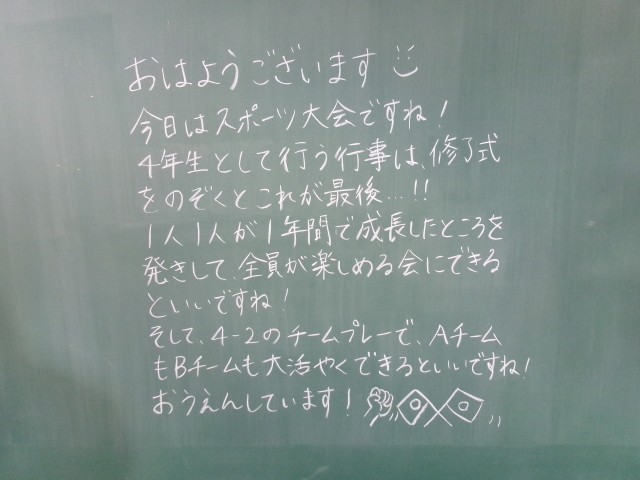 おはようございます
今日はスポーツ大会ですね!
4年生として行う行事は、修了式
をのぞくとこれが最後…!!
1人1人が1年間で成長したところを
発きして、全員が楽しめる会にできる
といいですね!
そして、4-2のチームプレーで、Aチーム
もBチームも大活やくできるといいですね!
おうえんしています!